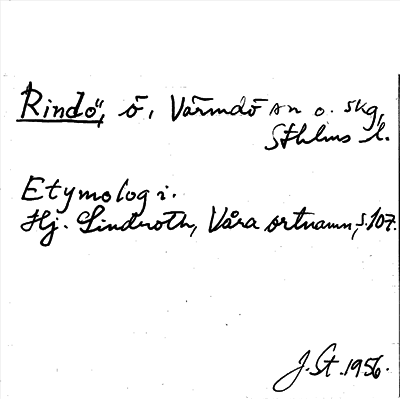 Rindö, ö, Värmdö sn o. skg,
Sthlms l.
Etymologi.
Hj. Lindroth, Våra ortnamn, s. 107.
J. St. 1956.